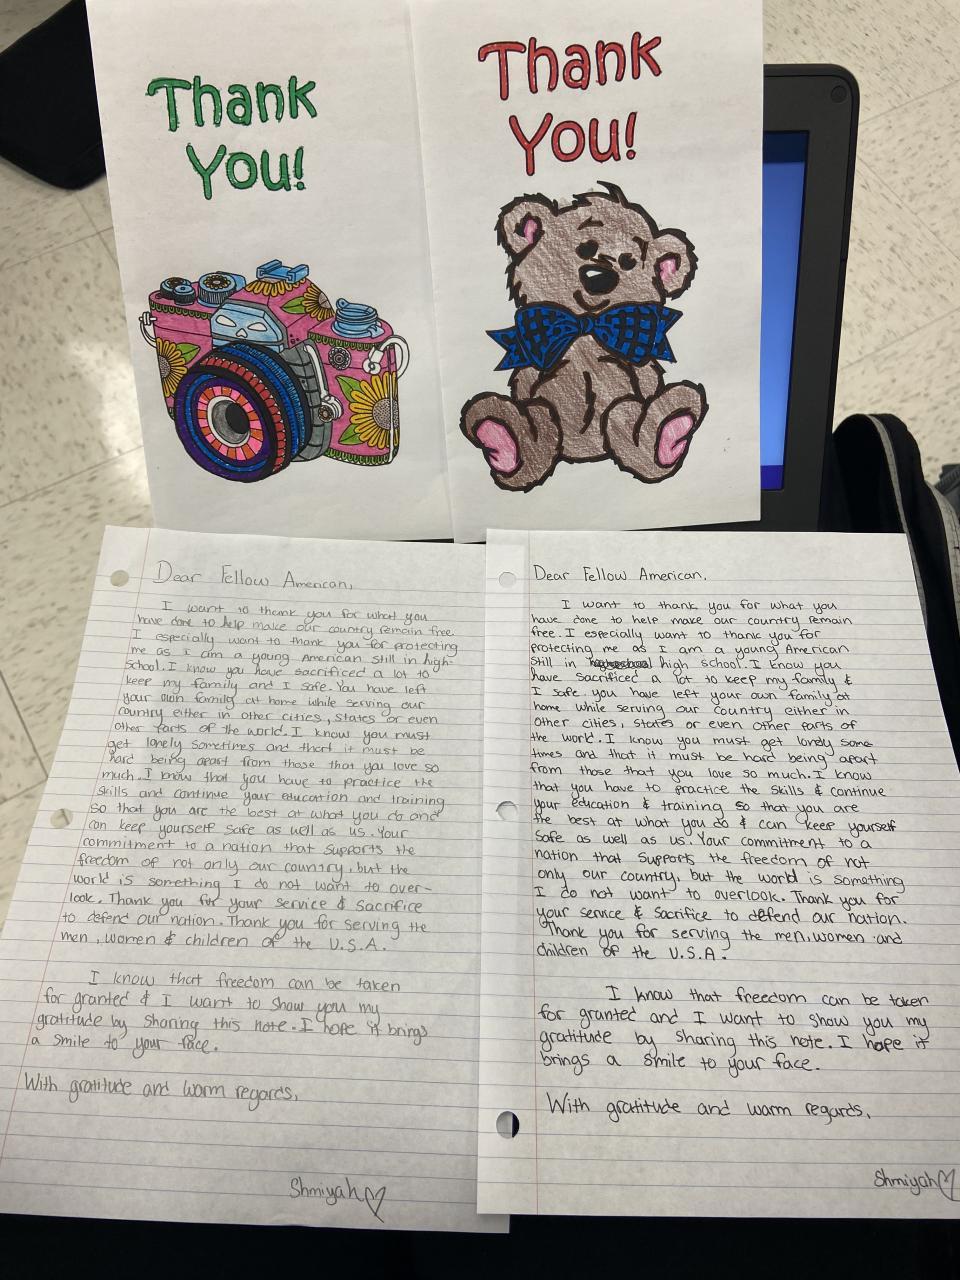 Thank
You!
Thank
You!
Dear Fellow American,
I want to thank you for what you
have done to help make our country remain free.
I especially want to thank you for protecting
me as I am a young American still in high-
school. I know you have sacrificed a lot to
keep my family and I safe. You have left
your own family at home while serving our
country either in other cities, states or even
other parts of the world. I know you must
get lonely sometimes and that it must be
hard being apart from those that you love so
much. I know that you have to practice the
skills and continue your education and training
so that you are the best at what you do and
can keep yourself safe as well as us. Your
commitment to a nation that supports the
freedom of not only our country, but the
world is something I do not want to over-
look. Thank you for your service & sacrifice
to defend our nation. Thank you for serving the
men, women & children of the U.S.A.
I know that freedom can be taken
for granted & I want to show you my
gratitude by sharing this note. I hope it brings
a smile to your face.
With gratitude and warm regards,
Shmiyah
Dear Fellow American,
I want to thank you for what you
have done to help make our country remain
free. I especially want to thank you for
protecting me as I am a young American
still in high school. I know you
have sacrificed a lot to keep my family &
I safe. you have left your own family at
home while serving our country either in
other cities, states or even other parts of
the world. I know you must get lonely some-
times and that it must be hard being apart
from those that you love so much. I know
that you have to practice the skills & continue
your education & training so that you are
the best at what you do & can keep yourself
safe as well as us. Your commitment to a
nation that supports the freedom of not
only our country, but the world is something
I do not want to overlook. Thank you for
your service & sacrifice to defend our nation.
Thank you for serving the men, women and
children of the U.S.A.
I know that freedom can be taken
for granted and I want to show you my
gratitude by sharing this note. I hope it
brings a smile to your face.
With gratitude and warm regards,
Shmiyah